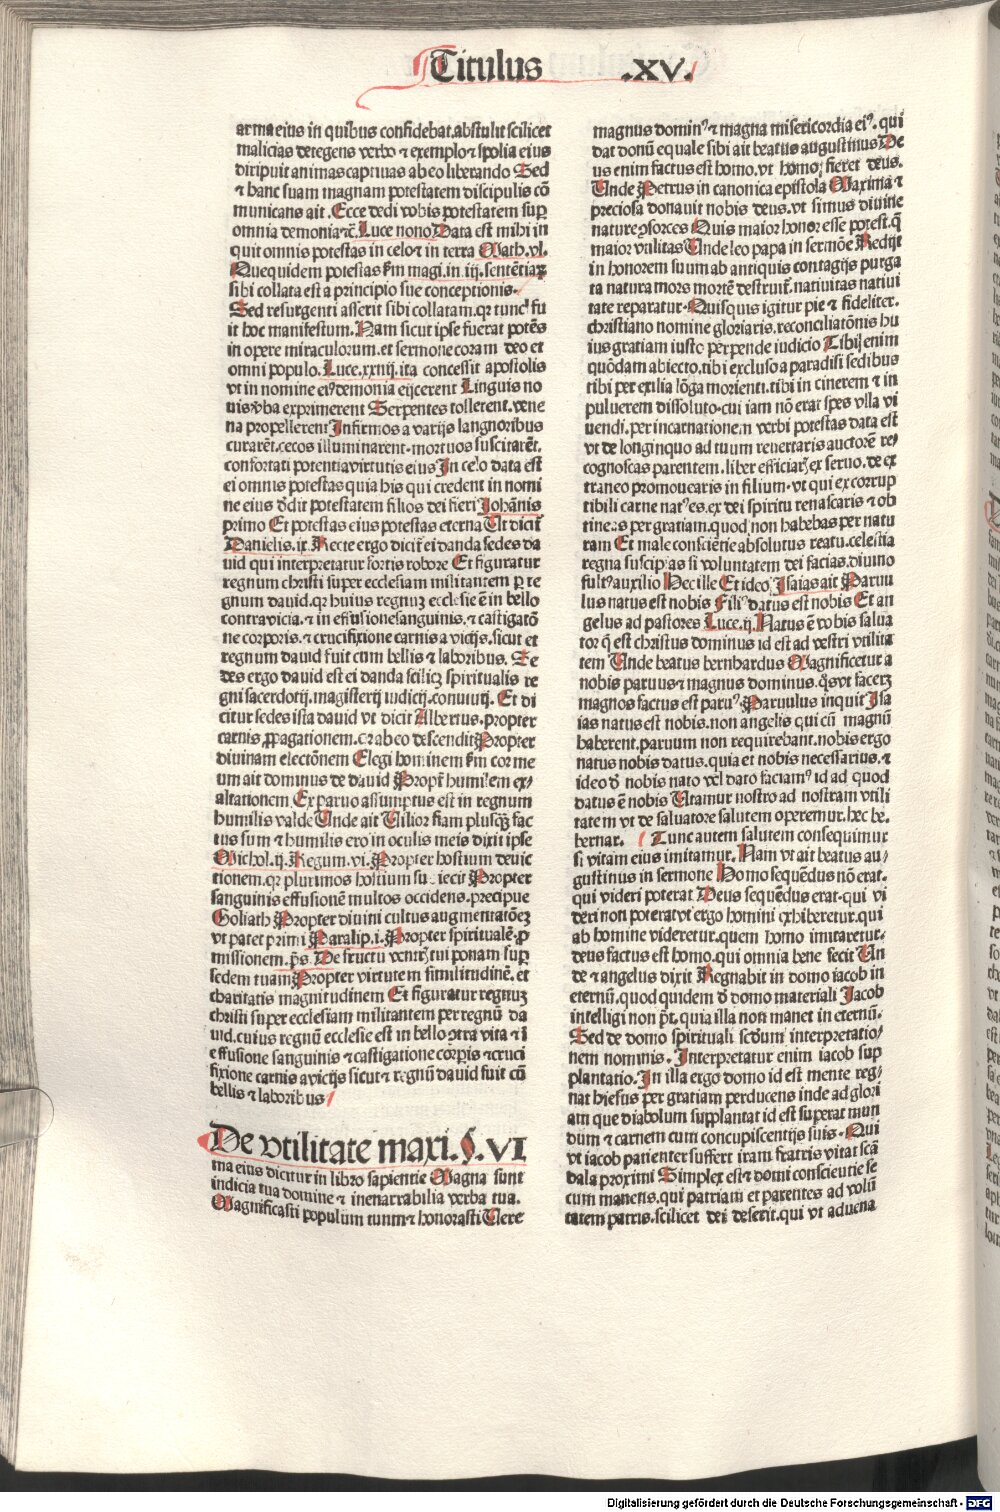 Titulus .XV.
arma eius in quibus confidebat.abstulit scilicet
malicias detegens verbo ⁊ exemplo⁊ spolia eius
diripuit animas captiuas ab eo liberando Sed
⁊ hanc suam magnam potestatem discipulis cō
municans ait. Ecce dedi vobis potestatem sup
omnia demonia ⁊c̄. Luce nono Data est mihi in
quit omnis potestas in celo⁊ in terra Math.vl.
Que quidem potestas ẜm magi.in iij.sentētiaꝝ
sibi collata est a principio sue conceptionis.
Sed resurgenti asserit sibi collatam.qꝛ tunc fu
it hoc manifestum. Nam sicut ipse fuerat potēs
in opere miraculorum.et sermone coram deo et
omni populo. Luce.xxiiij.ita concessit apostolis
vt in nomine eiꝰ demonia eijcerent Linguis no
uis ṽba exprimerent Serpentes tollerent.vene
na propellerent Infirmos a varijs langnoribus
curarēt.cecos illuminarent.mortuos suscitarēt.
confortati potentia virtutis eius In celo data est
ei omnis potestas quia his qui credent in nomi
ne eius dedit potestatem filios dei fieri Johānis
primo Et potestas eius potestas eterna Ut dicit
Danielis.ix. Recte ergo dicit̄ ei danda sedes da
uid qui interpretatur fortis robore Et figuratur
regnum christi super ecclesiam militantem p re
gnum dauid.qꝛ huius regnuꝫ ecclesie ē in bello
contra vicia.⁊ in effusione sanguinis.⁊ castigatō
ne corporis.⁊ crucifixione carnis a vicijs.sicut et
regnum dauid fuit cum bellis ⁊ laboribus. Se
des ergo dauid est ei danda scilicꝫ spiritualis re
gni sacerdotij.magisterij iudicij.conuiuij. Et di
citur sedes ista dauid vt dicit Albertus.propter
carnis ꝓpagationem.qꝛ ab eo descendit Propter
diuinam electōnem Elegi hominem ẜm cor me
um ait dominus de dauid Propt̄ humilem ex⸗
altationem. Ex paruo assumptus est in regnum
humilis valde Unde ait Uilior fiam plusqꝫ fac
tus sum ⁊ humilis ero in oculis meis dixit ipse
Michol.ij.Regum.vi. Propter hostium deuic
tionem.qꝛ plurimos hostium subiecit Propter
sanguinis effusionē multos occidens.precipue
Goliath Propter diuini cultus augmentatōeꝫ
vt patet primi Paralip.i. Propter spiritualē.ꝓ
missionem.p̄s. De fructu ventr̄ tui ponam sup
sedem tuam Propter virtutem similitudinē.et
charitatis magnitudinem Et figuratur regnuꝫ
christi super ecclesiam militantem per regnū da
uid.cuius regnū ecclesie est in bello ꝯtra vita ⁊ ī
effusione sanguinis ⁊ castigatione corp̄is ⁊cruci
fixione carnis a vicijs sicut⁊ regnū dauid fuit cū
bellis ⁊ laboribus
De vtilitate maxi. §.VI
ma eius dicitur in libro sapientie Magna sunt
indicia tua domine ⁊ inenarrabilia verba tua.
Magnificasti populum tuum⁊ honorasti Uere
magnus dominꝰ ⁊ magna misericordia eiꝰ.qui
dat donū equale sibi ait beatus augustinus De
us enim factus est homo.vt homo fieret deus.
Unde Petrus in canonica epistola Maxima ⁊
preciosa donauit nobis deus.vt simus diuine
nature ꝯsortes Quis maior honor esse potest.q̄
maior vtilitas Unde leo papa in sermōe Redijt
in honorem suum ab antiquis contagijs purga
ta natura mors mortē destruit.natiuitas natiui
tate reparatur. Quisquis igitur pie ⁊ fideliter.
christiano nomine gloriaris.reconciliatōnis hu
ius gratiam iusto perpende iudicio Tibi enim
quōdam abiecto.tibi excluso a paradisi sedibus
tibi per exilia lōga morienti.tibi in cinerem ⁊ in
puluerem dissoluto.cui iam nō erat spes vlla vi
uendi.per incarnationem verbi potestas data est
vt de longinquo ad tuum reuertaris auctorē re⸗
cognoscas parentem.liber efficiarꝫ ex seruo.de ex
traneo promouearis in filium.vt qui ex corrup
tibili carne natꝰ es.ex dei spiritu renascaris ⁊ ob
tineas per gratiam.quod non habebas per natu
ram Et male consciētie absolutus reatu.celestia
regna suscipias si voluntatem dei facias.diuino
fultꝰ auxilio Hec ille Et ideo Isaias ait Paruu
lus natus est nobis Filiꝰ datus est nobis Et an
gelus ad pastores Luce.ij. Natus ē vobis salua
tor q̄ est christus dominus id est ad vestri vtilita
tem Unde beatus bernhardus Magnificetur a
nobis paruus⁊ magnus dominus.q̄ vt facerꝫ
magnos factus est paruꝰ. Paruulus inquit Isa
ias natus est nobis.non angelis qui cū magnū
haberent.paruum non requirebant.nobis ergo
natus nobis datus.quia et nobis necessarius.⁊
ideo ꝺ nobis nato vel dato faciamꝰ id ad quod
datus ē nobis Utamur nostro ad nostram vtili
tatem vt de saluatore salutem operemur.hec be.
bernar. Tunc autem salutem consequimur
si vitam eius imitamur. Nam vt ait beatus au⸗
gustinus in sermone Homo sequēdus nō erat.
qui videri poterat Deus sequēdus erat.qui vi
deri non poterat vt ergo homini exhiberetur.qui
ab homine videretur.quem homo imitaretur.
deus factus est homo.qui omnia bene fecit Un
de ⁊ angelus dixit Regnabit in domo iacob in
eternū.quod quidem ꝺ domo materiali Jacob
intelligi non pōt.quia illa non manet in eternū.
Sed de domo spirituali scdūm interpretatio⸗
nem nominis. Interpretatur enim iacob sup
plantatio. In illa ergo domo id est mente reg⸗
nat hiesus per gratiam perducens inde ad glori
am que diabolum supplantat id est superat mun
dum ⁊ carnem cum concupiscentijs suis. Qui
vt iacob patienter suffert iram fratris vitat scā
dala proximi Simplex est⁊ domi conscientie se
cum manens.qui patriam et parentes ad volū
tatem patris.scilicet dei deserit.qui vt aduena
Digitalisierung gefördert durch die Deutsche Forschungsgemeinschaft - DFG